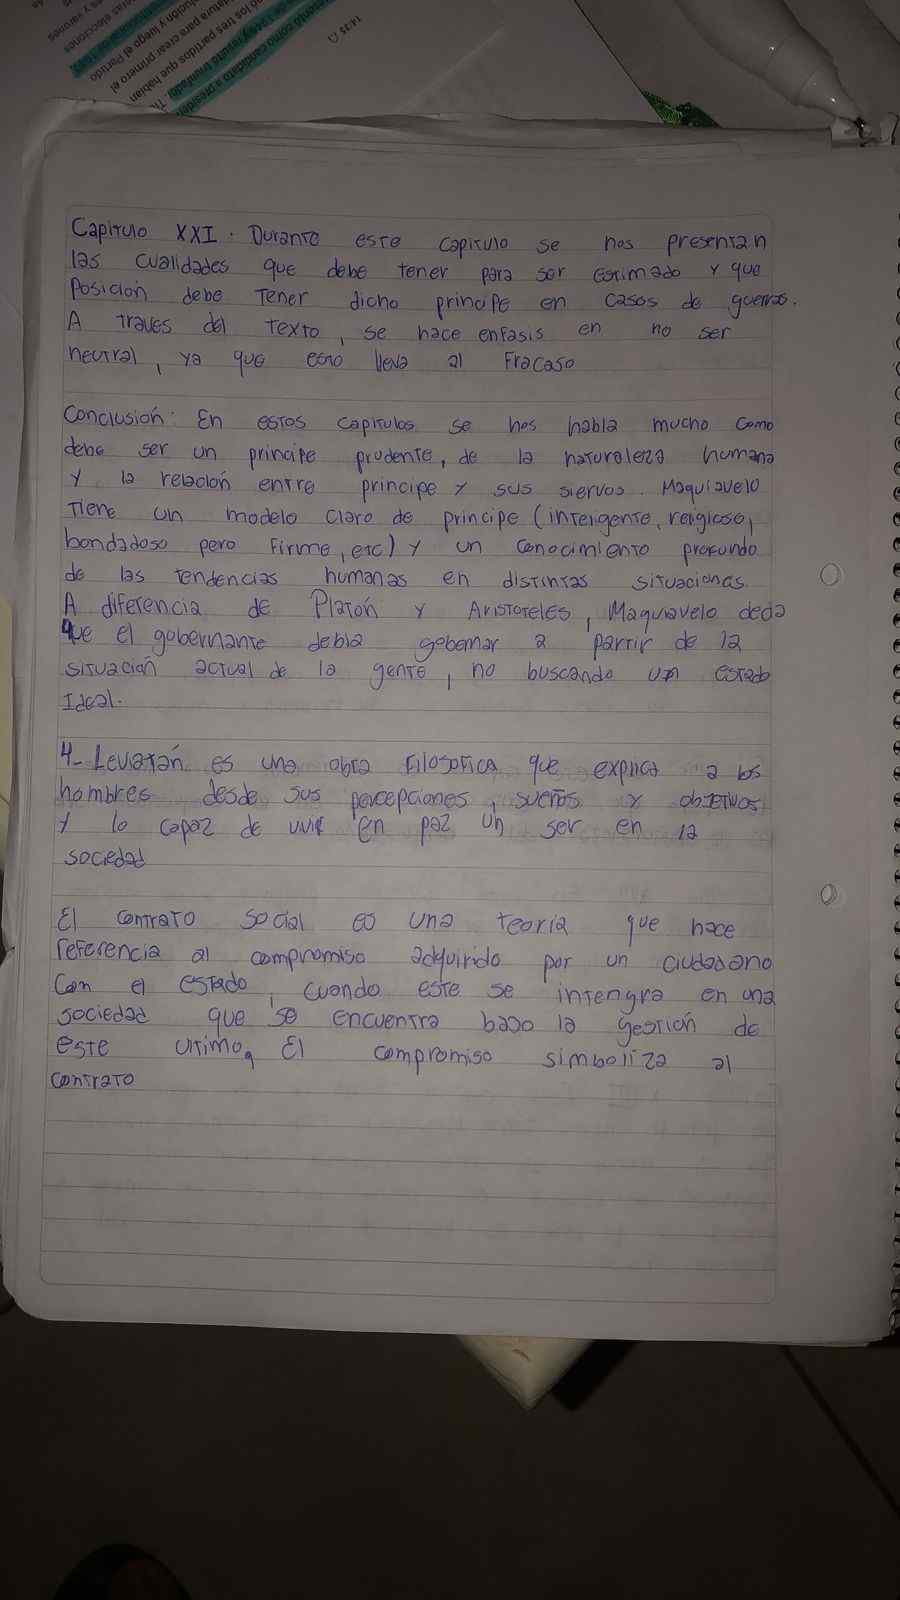 14:35
Capitulo XXI. Durante este capitulo se nos presentan
las cualidades que debe tener para ser estimado y que
posición debe tener dicho principe en casos de guerras.
A traves del texto, se hace enfasis en no ser
neutral, ya que esto lleva al fracaso
Conclusión: En estos capitulos se nos habla mucho como
debe ser un principe prudente, de la naturaleza humana
y la relación entre principe y sus siervos. Maquiavelo
tiene un modelo claro de principe (inteligente, religioso,
bondadoso pero firme, etc) y un conocimiento profundo
de las tendencias humanas en distintas situaciones.
A diferencia de Platón y Aristoteles, Maquiavelo decia
que el gobernante debia gobernar a partir de la
situación actual de la gente, no buscando un estado
Ideal.
4- Leviatán es una obra filosofica que explica a los
hombres desde sus percepciones, sueños y objetivos
y lo capaz de vivir en paz un ser en la
sociedad
El contrato social es una teoria que hace
referencia al compromiso adquirido por un ciudadano
con el estado, cuando este se intengra en una
sociedad que se encuentra bajo la gestión de
este ultimo. El compromiso simboliza al
contrato